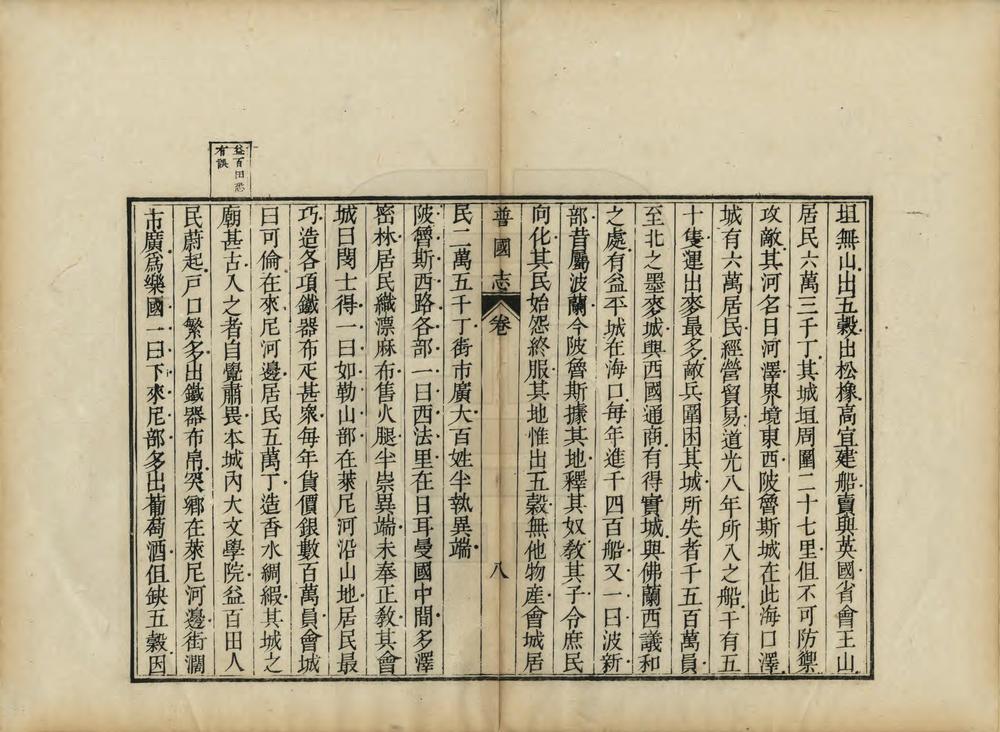 坦無山出五穀出松橡高宜建船賣與英國省會王山
居民六萬三千丁其城垣周圍二十七里但不可防禦
攻敵其河名曰河澤界境東西陂魯斯城在此海口澤
城有六萬居民經營貿易道光八年所入之船千有五
十隻運出麥最多敵兵圍困其城所失者千五百萬員
至北之墨麥城與西國通商有得實城與佛蘭西議和
之處有益平城在海口每年進千四百船又一曰波新
部昔屬波蘭今陂魯斯據其地釋其奴教其子令庶民
向化其民始怨終服其地惟出五穀無他物產會城居
普國志 卷 八
民二萬五千丁街市廣大百姓半執異端
陂魯斯西路各部一曰西法里在日耳曼國中間多澤
密林居民織漂麻布售火腿半崇異端未奉正教其會
城曰閔士得一曰如勒山部在萊尼河沿山地居民最
巧造各項鐵器布疋甚衆每年貨價銀數百萬員會城
曰可倫在來尼河邊居民五萬丁造香水綢緞其城之
廟甚古入之者自覺肅畏本城內大文學院益百田人
民蔚起戶口繁多出鐵器布帛突鄉在萊尼河邊街濶
市廣爲樂國一曰下來尼部多出葡萄酒但缺五穀因
益百田恐
有誤